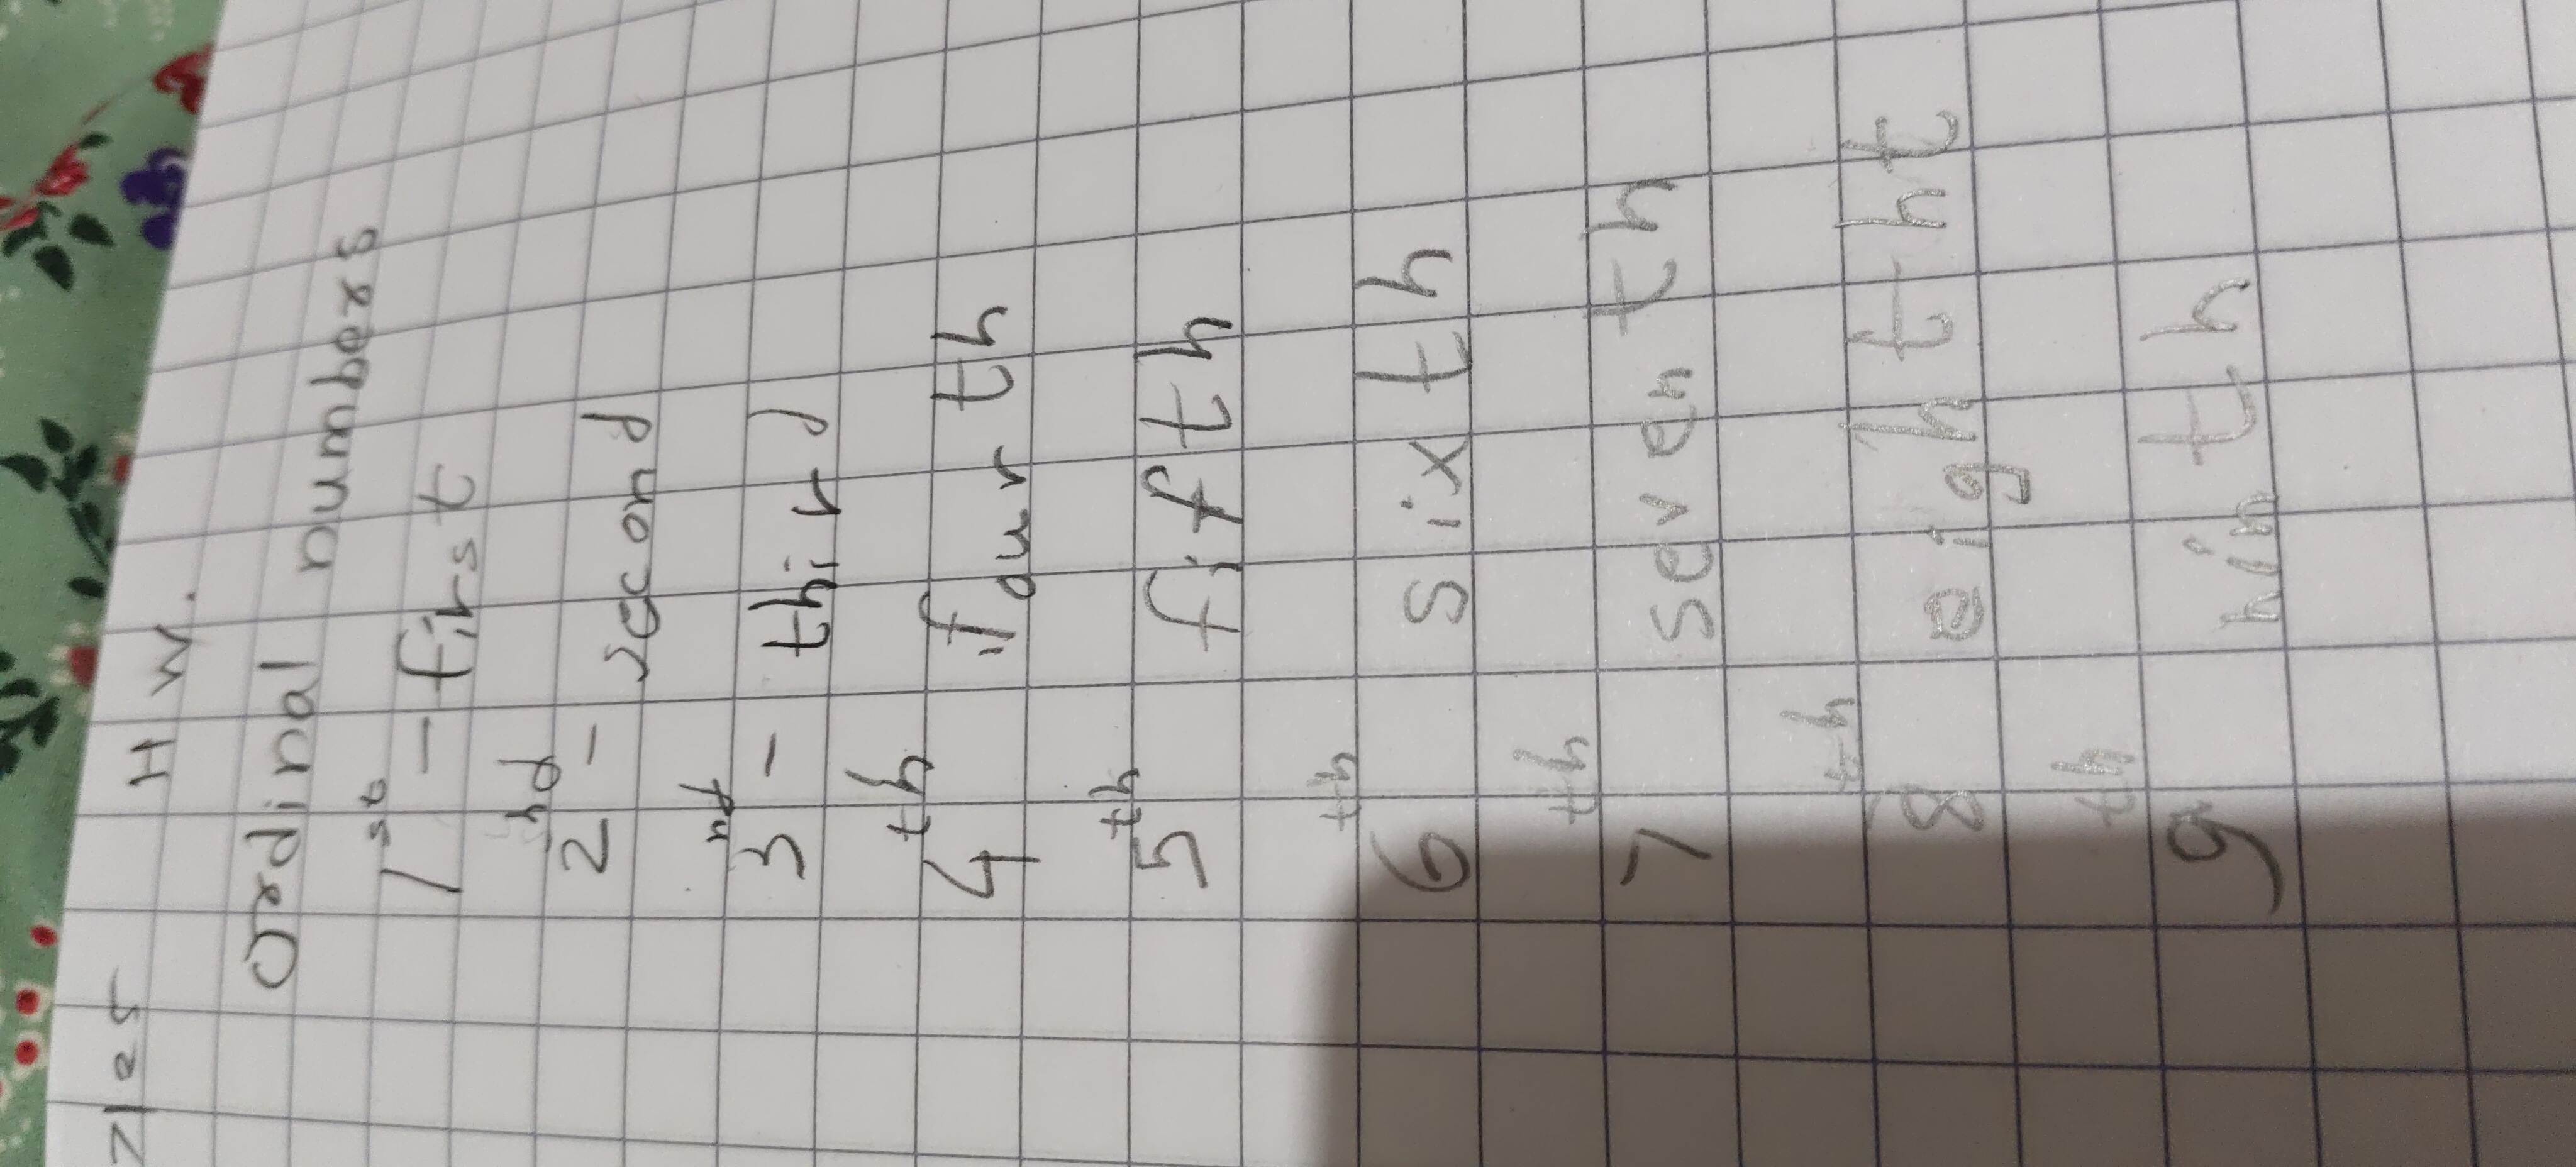 H W.
Ordinal numbers
1st - first
2nd - second
3rd - third
4th fourth
5th fifth
6th sixth
7th seventh
8th eighthht
9th ninth